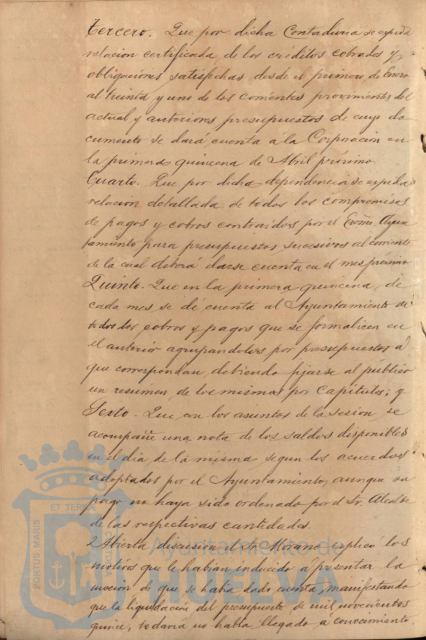 Tercero. Que por dicha Contaduria se expida
relacion certificada de los créditos cobrados y
obligaciones satisfechas desde el primero de Enero
al treinta y uno de los corrientes provinientes del
actual y anteriores presupuestos de cuyo do
cumento se dará cuenta a la Corporacion en
la primera quincena de Abril próximo
Cuarto. Que por dicha dependencia se expida
relacion detallada de todos los compromisos
de pagos y cobros contraidos por el Excmo. Ayun
tamiento para presupuestos sucesivos al corriente
de la cual deberá darse cuenta en el mes próximo
Quinto. Que en la primera quincena de
cada mes se dé cuenta al Ayuntamiento de
todos los cobros y pagos que se formalicen en
el anterior agrupandolos por presupuestos a
que correspondan debiendo fijarse al publico
un resumen de los mismos por Capítulos; y
Sexto. Que con los asuntos de la sesion se
acompañe una nota de los saldos disponibles
en el dia de la misma segun los acuerdos
adoptados por el Ayuntamiento, aunque su
pago no haya sido ordenado por el Sr. Alcalde
de las respectivas cantidades.
Abierta discusion el Sr. Morano explicó los
motivos que le habian inducido a presentar la
mocion de que se habia dado cuenta, manifestando
que la liquidacion del presupuesto de mil novecientos
quince, todavia no habia llegado a conocimiento
PORTUS MARIS
ET TERRAE
Ayuntamiento de
HUELVA